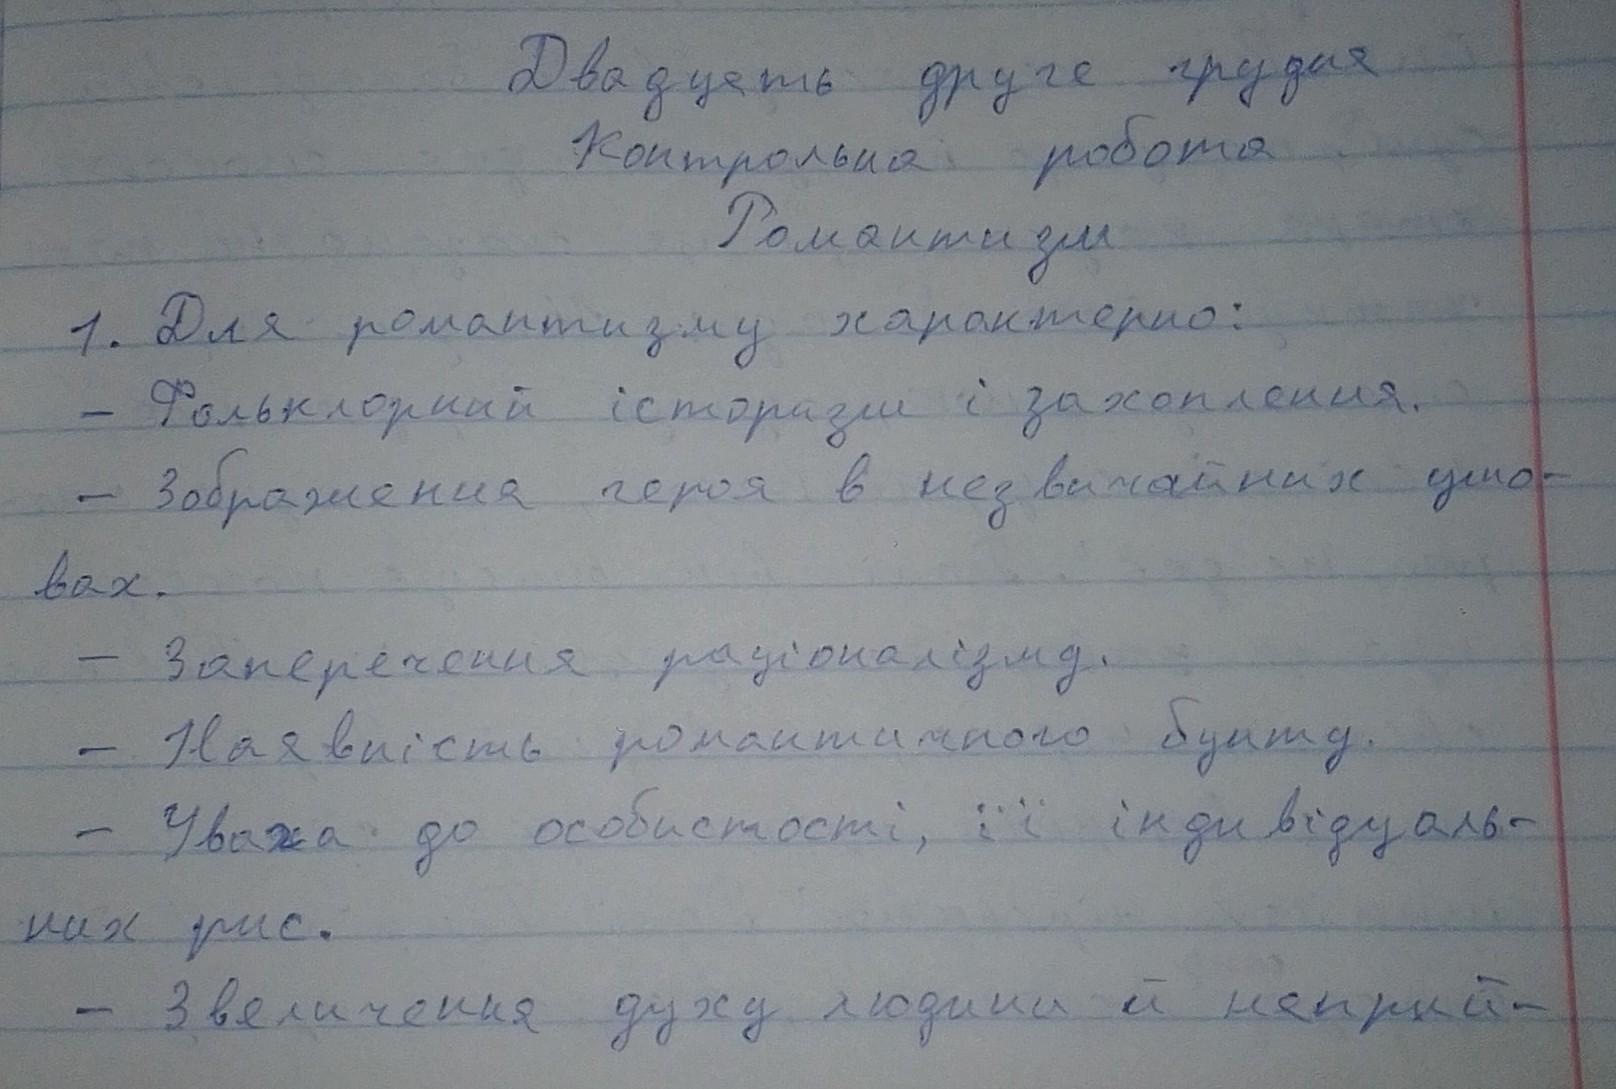 Двадцять друге грудня
Контрольна робота
Романтизм
1. Для романтизму характерно:
- Фольклорний історизм і захоплення.
- Зображення героя в незвичайних умо-
вах.
- Заперечення раціоналізму.
- Наявність романтичного бунту.
- Увага до особистості, її індивідуаль-
них рис.
- Звеличення духу людини й неприй-